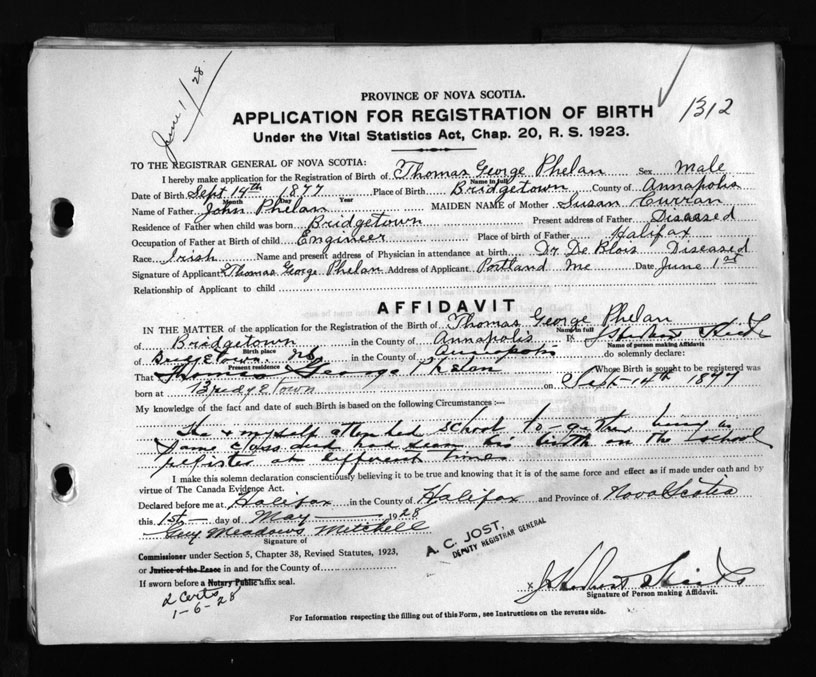 June 1/28.
PROVINCE OF NOVA SCOTIA.
APPLICATION FOR REGISTRATION OF BIRTH 1312
Under the Vital Statistics Act, Chap. 20, R. S. 1923.
TO THE REGISTRAR GENERAL OF NOVA SCOTIA:
I hereby make application for the Registration of Birth of Thomas George Phelan Sex Male
Name in full
Date of Birth Sept 14th 1877 Place of Birth Bridgetown County of Annapolis
Month Day Year
Name of Father John Phelan MAIDEN NAME of Mother Susan Curran
Residence of Father when child was born Bridgetown Present address of Father Diseased
Occupation of Father at Birth of child Engineer Place of birth of Father Halifax
Race Irish Name and present address of Physician in attendance at birth Dr. De Blois Diseased
Signature of Applicant Thomas George Phelan Address of Applicant Portland Me Date June 1st
Relationship of Applicant to child
AFFIDAVIT
IN THE MATTER of the application for the Registration of the Birth of Thomas George Phelan
Name in full
of Bridgetown in the County of Annapolis I, Herbert
Birth place Name of person making Affidavit
of Bridgetown. NS in the County of Annapolis do solemnly declare:
Present residence
That Thomas George Phelan Whose Birth is sought to be registered was
born at Bridgetown on Sept-14th 1877
My knowledge of the fact and date of such Birth is based on the following Circumstances:—
He & myself attended school to-gether being in
same class and had seen his birth on the school
register at different times
I make this solemn declaration conscientiously believing it to be true and knowing that it is of the same force and effect as if made under oath and by
virtue of The Canada Evidence Act.
Declared before me at Halifax in the County of Halifax and Province of Nova Scotia
this 1st day of May 1928
Guy Meadows Mitchell
Signature of
A. C. JOST,
DEPUTY REGISTRAR GENERAL
Commissioner under Section 5, Chapter 38, Revised Statutes, 1923,
or Justice of the Peace in and for the County of
If sworn before a Notary Public affix seal.
x Herbert
Signature of Person making Affidavit.
2 Certs
1-6-28
For Information respecting the filling out of this Form, see Instructions on the reverse side.